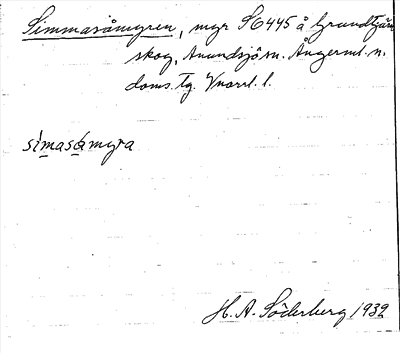 Simmasåmyren, myr SG445 å Grundtjärn
skog, Anundsjö sn. Ångerml. n.
doms. tg. Vnorrl. l.
simasåmyra
H. A. Söderberg 1932